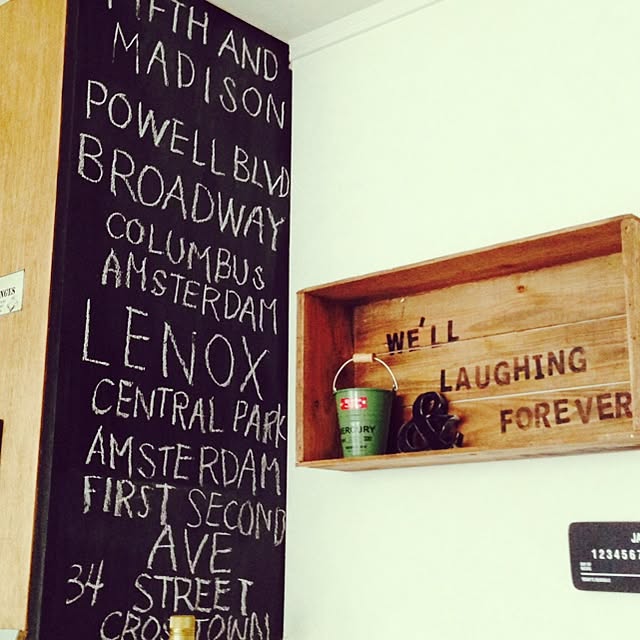 FIFTH AND
MADISON
POWELL BLVD
BROADWAY
COLUMBUS
AMSTERDAM
LENOX
CENTRAL PARK
AMSTERDAM
FIRST SECOND
AVE
34 STREET
CROSSTOWN
WE'LL
LAUGHING
FOREVER
MERCURY
&
NGES
JA
1234567